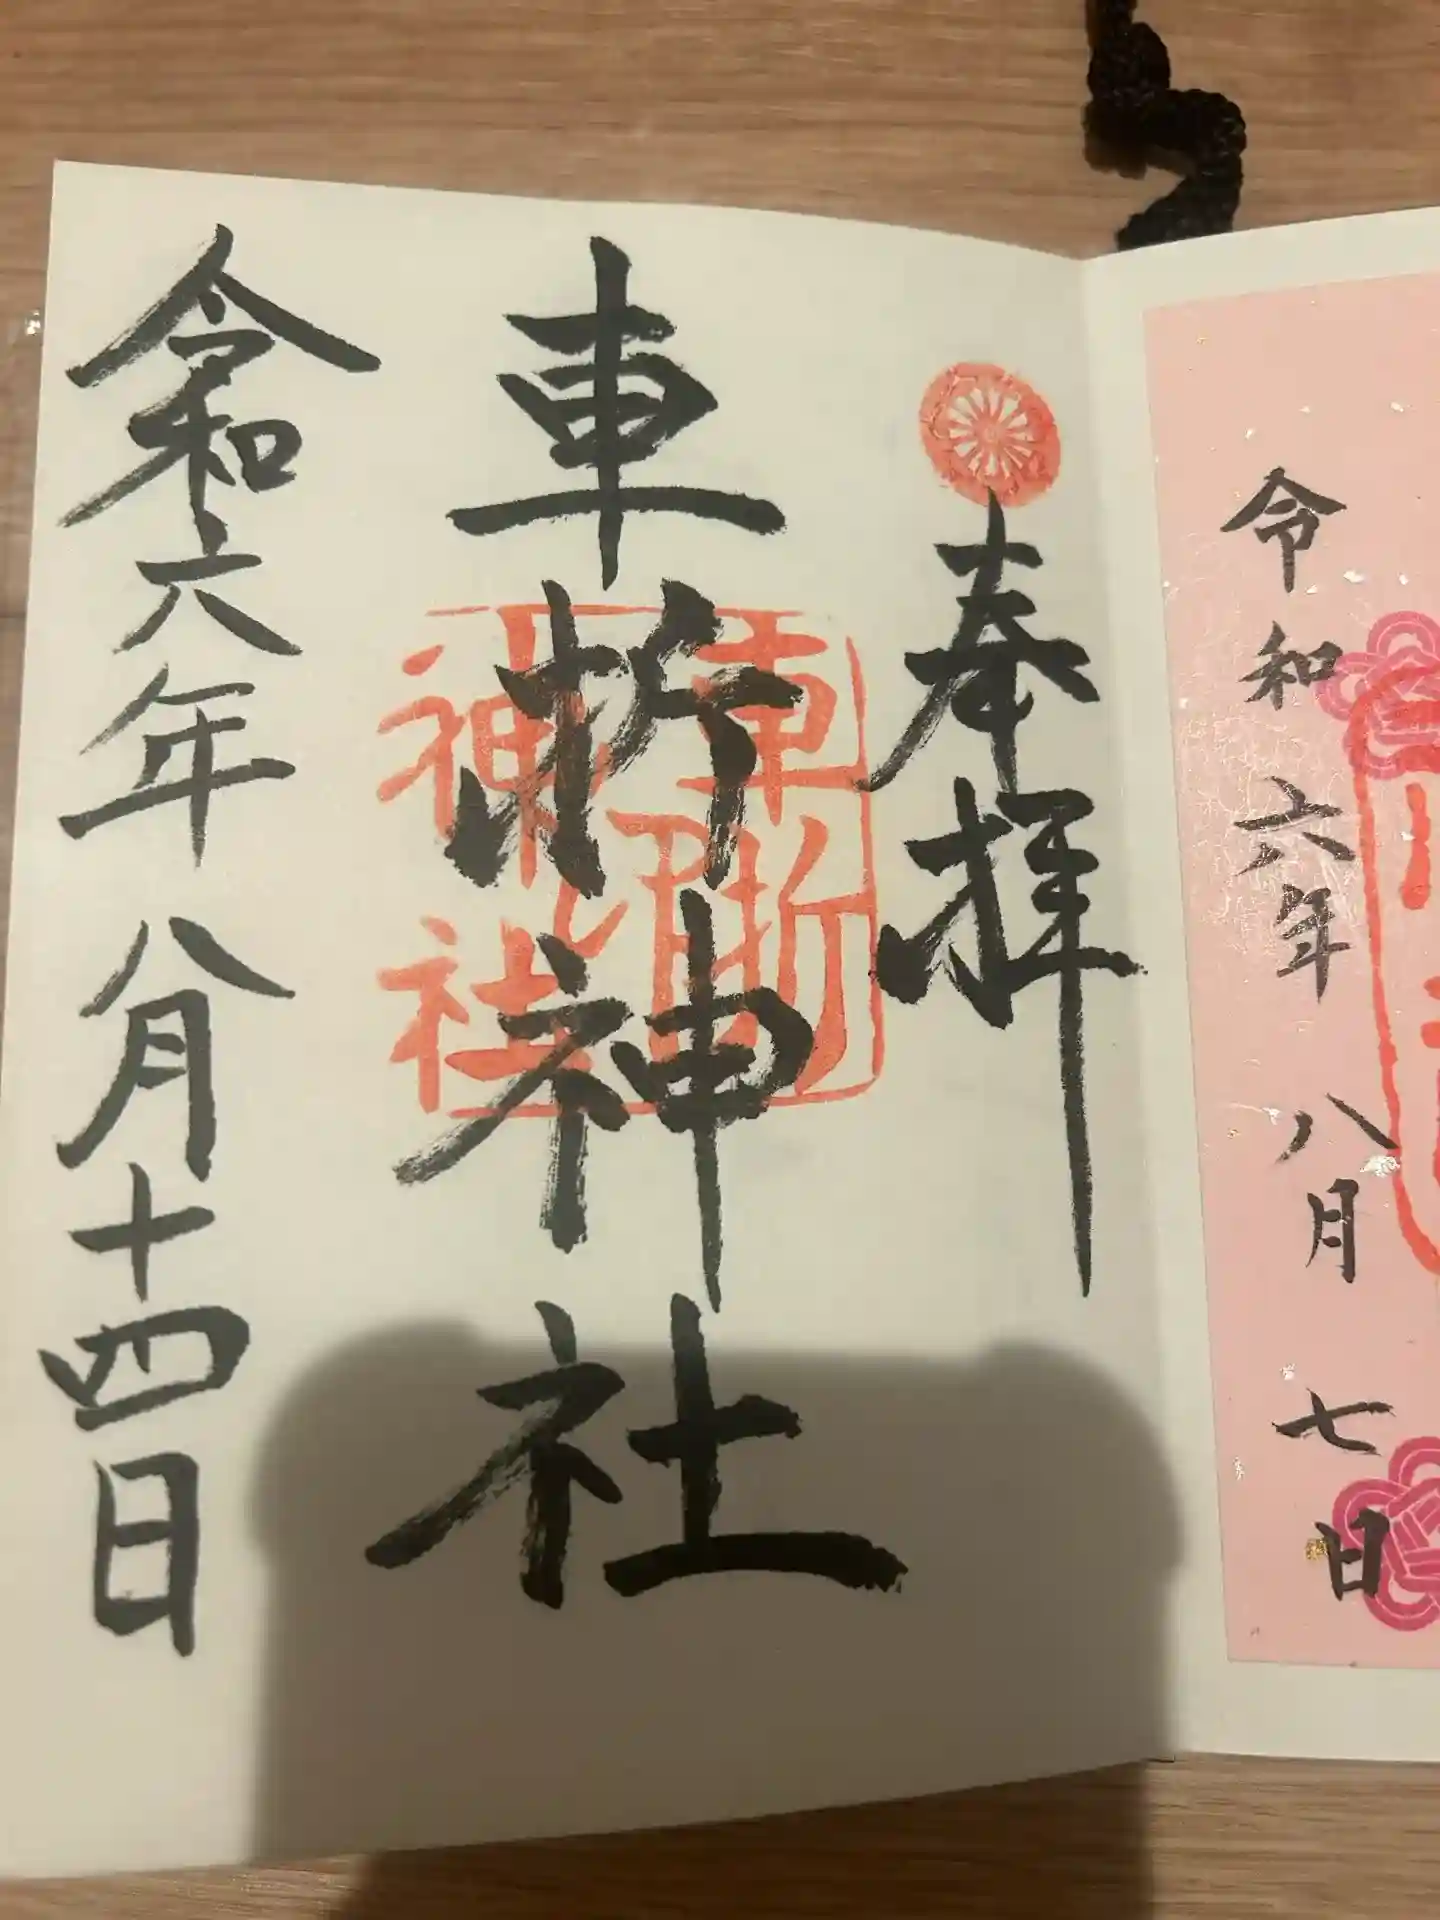 令和六年 八月 七日
奉拝
車折神社
車折神社
令和六年 八月十四日